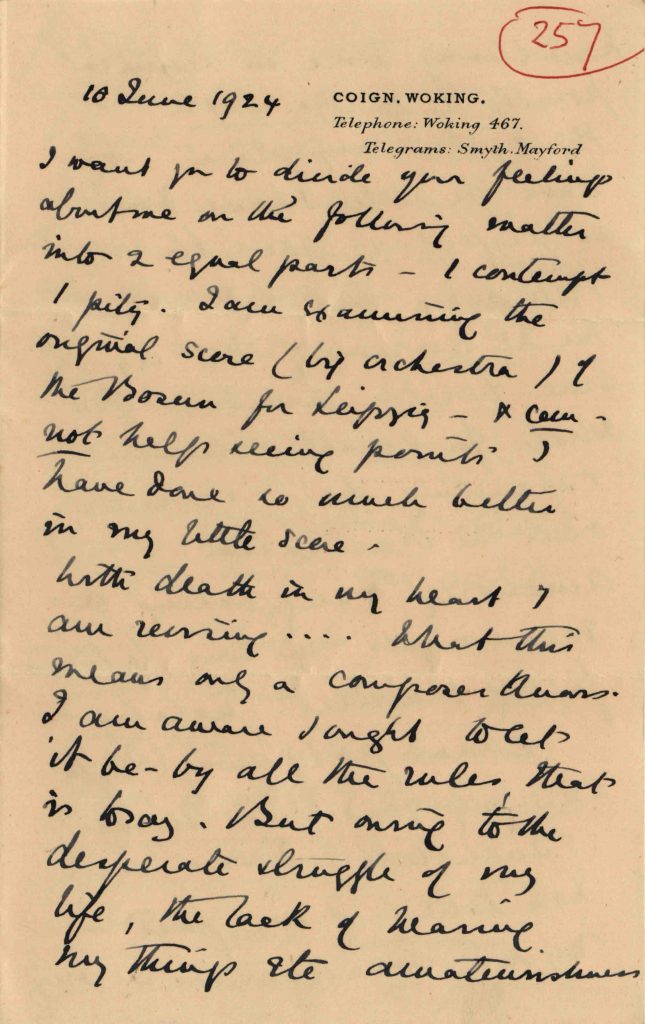 257
10 June 1924
COIGN, WOKING.
Telephone: Woking 467.
Telegrams: Smyth. Mayford
I want you to divide your feelings
about me on the following matter
into 2 equal parts – 1 contempt
1 pity. I am examining the
original score (big orchestra) of
the Bosun for Leipzig – & can-
not help seeing points I
have done so much better
in my little score –
With death in my heart I
am revising .... What this
means only a composer knows.
I am aware I ought to let
it be – by all the rules, that
is to say. But owing to the
desperate struggle of my
life, the lack of hearing
my things etc amateurishness